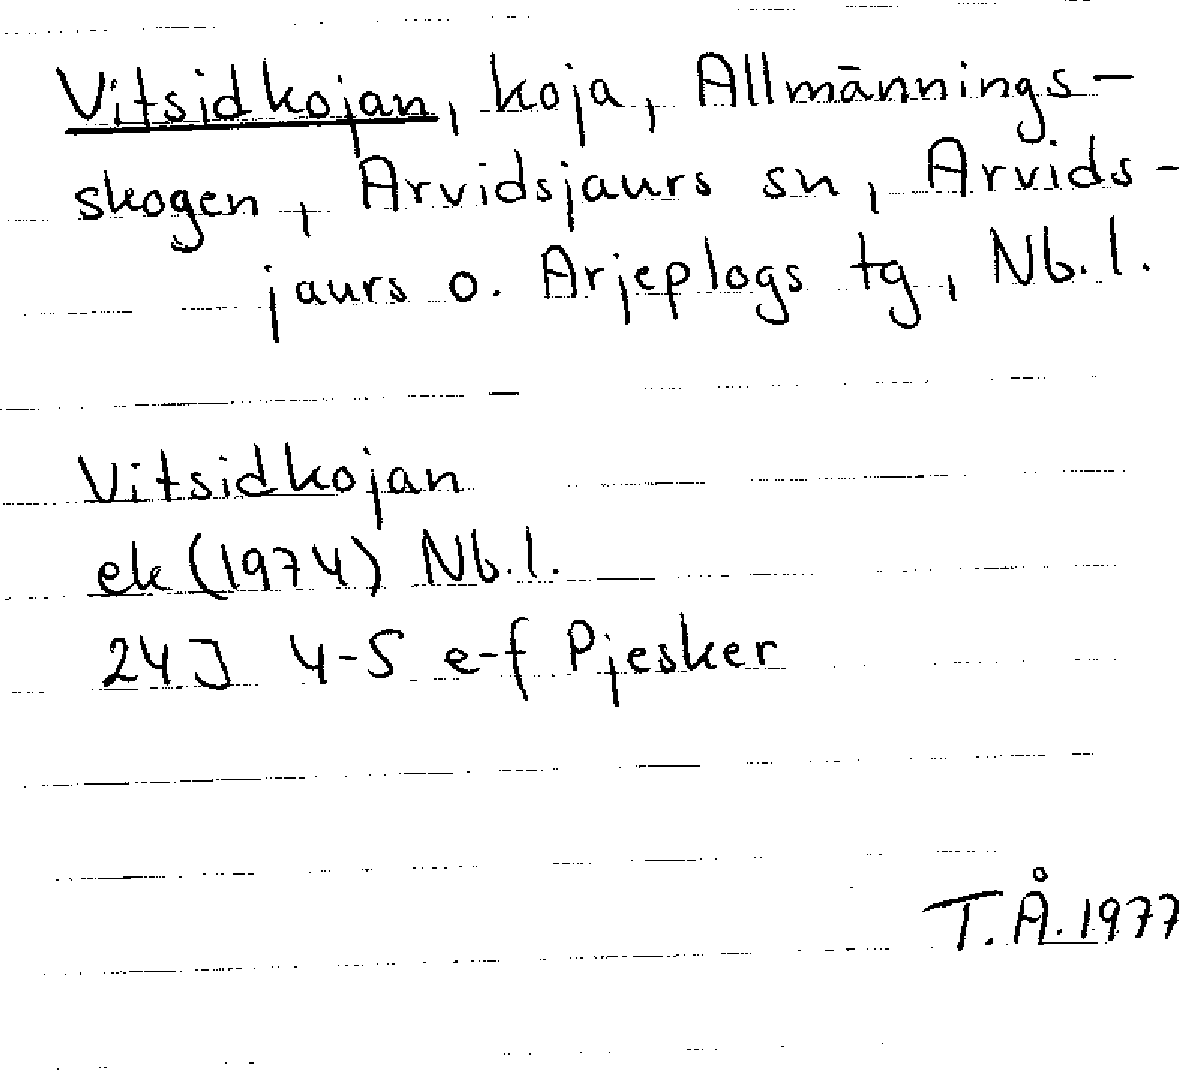 Vitsidkojan, koja, Allmännings-
skogen, Arvidsjaurs sn, Arvids-
jaurs o. Arjeplogs tg, Nb.l.
Vitsidkojan
ek (1974) Nb.l.
24J 4-5 e-f Pjesker
T.Å. 1977